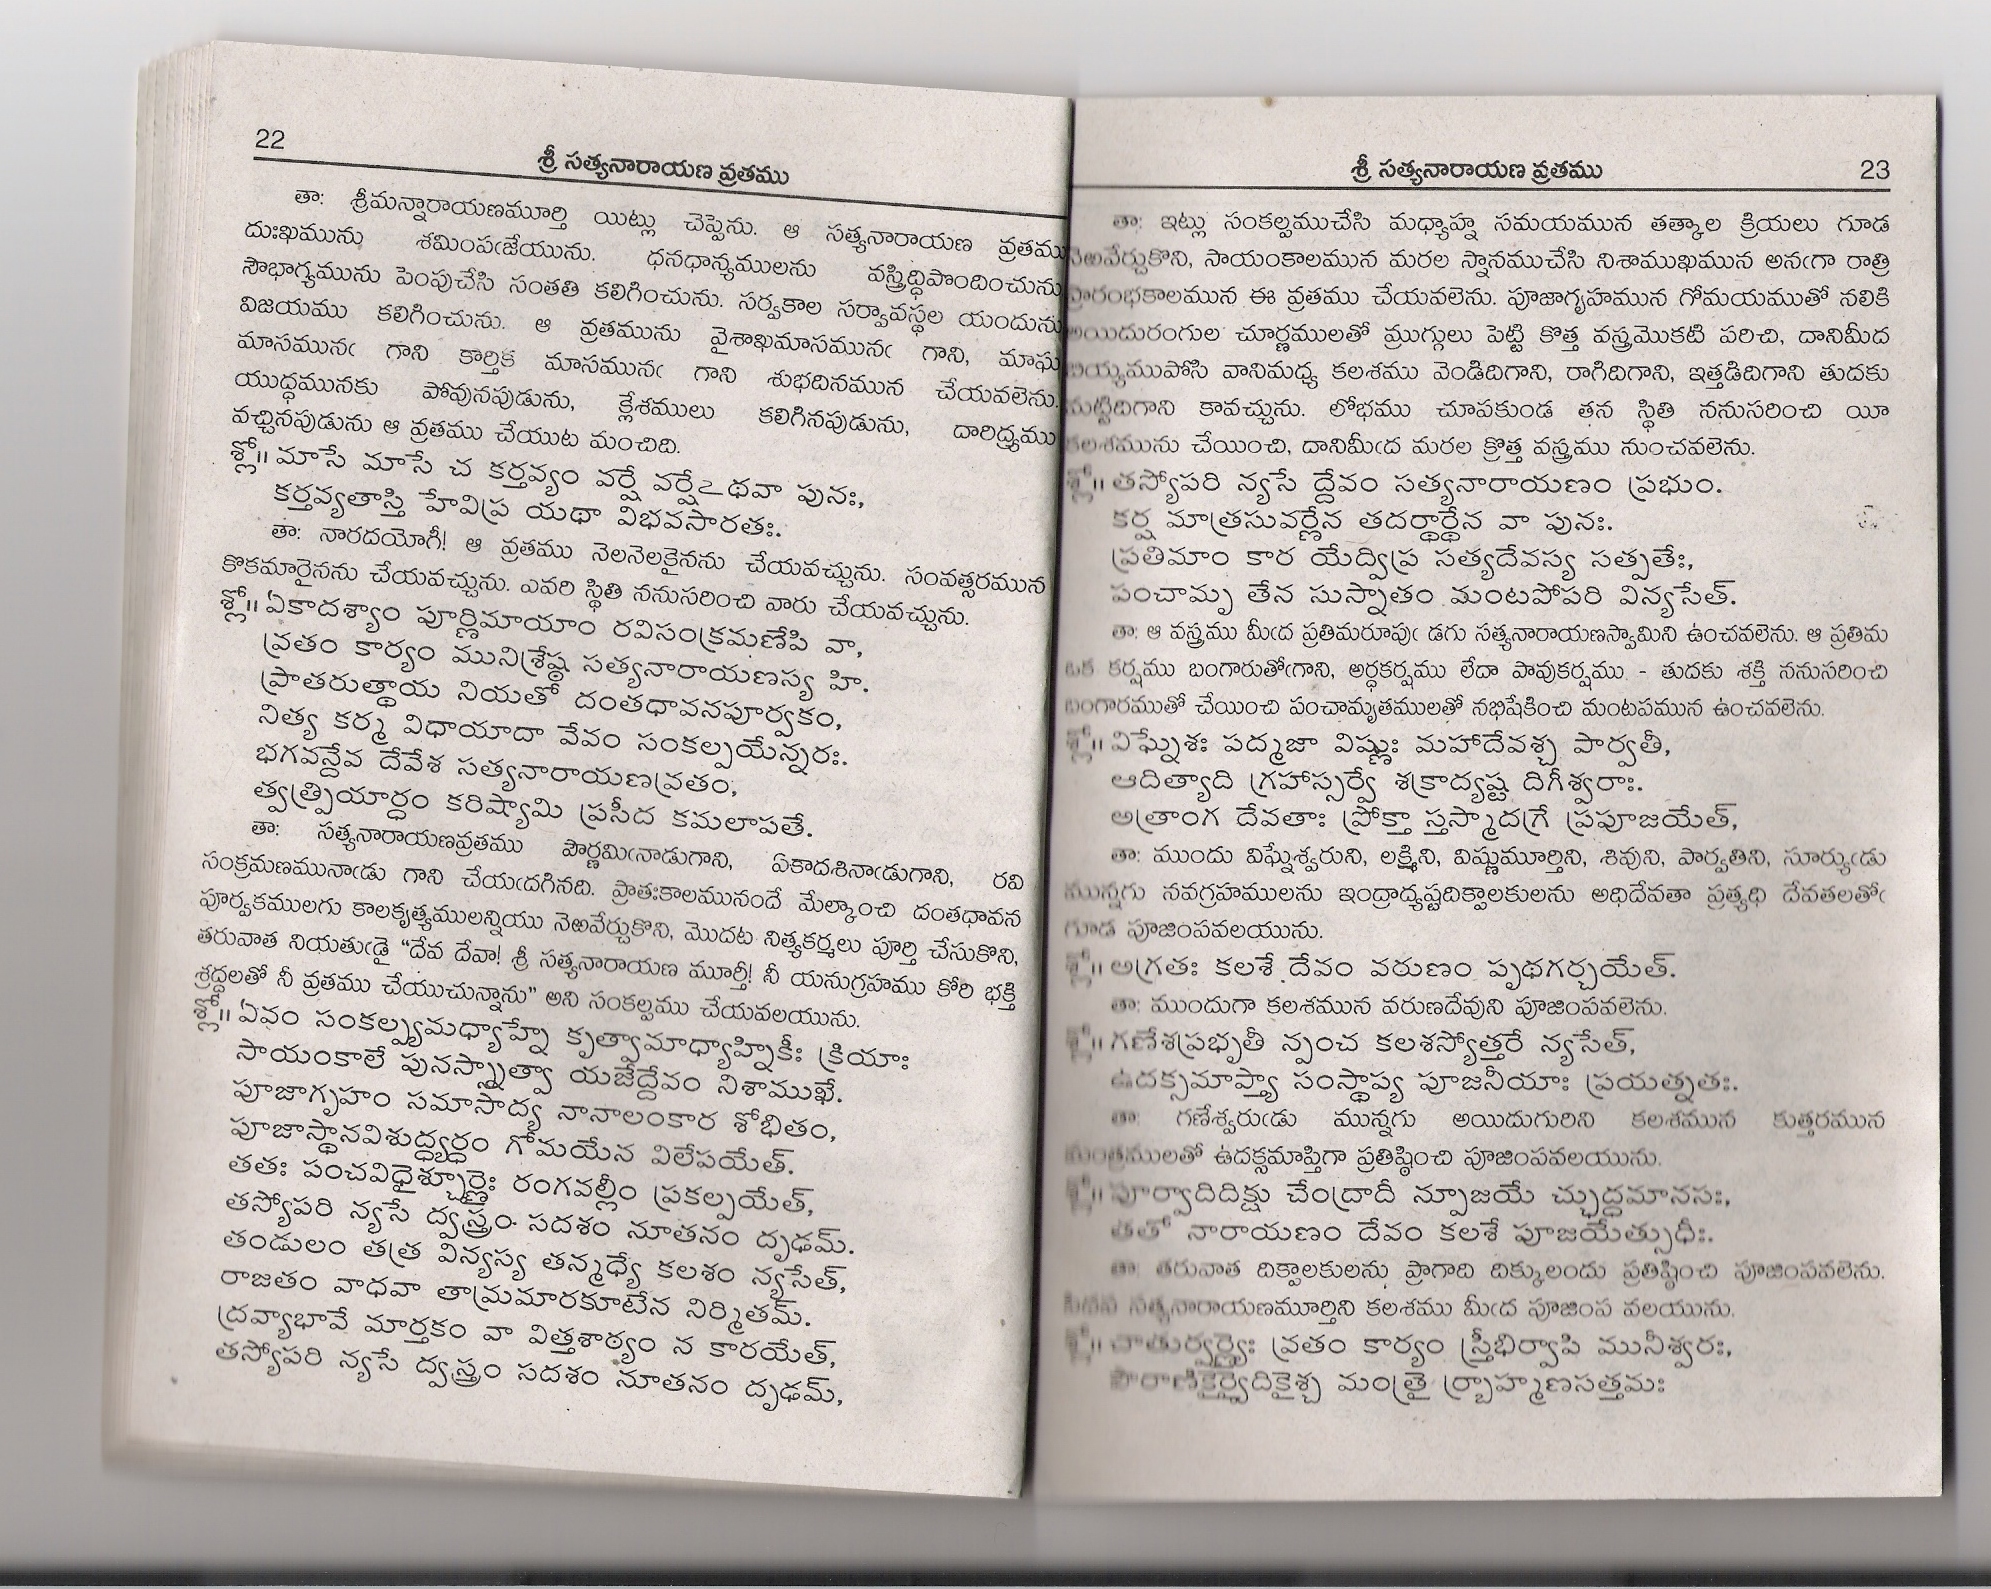 22
శ్రీ సత్యనారాయణ వ్రతము
తా: శ్రీమన్నారాయణమూర్తి యిట్లు చెప్పెను. ఆ సత్యనారాయణ వ్రతము
దుఃఖమును శమింపఁజేయును. ధనధాన్యములను వస్త్రిద్ధిపొందించును
సౌభాగ్యమును పెంపుచేసి సంతతి కలిగించును. సర్వకాల సర్వావస్థల యందును
విజయము కలిగించును. ఆ వ్రతమును వైశాఖమాసమునఁ గాని, మాఘ
మాసమునఁ గాని కార్తిక మాసమునఁ గాని శుభదినమున చేయవలెను.
యుద్ధమునకు పోవునపుడును, క్లేశములు కలిగినపుడును, దారిద్ర్యము
వచ్చినపుడును ఆ వ్రతము చేయుట మంచిది.
శ్లో॥ మాసే మాసే చ కర్తవ్యం వర్షే వర్షేఽథవా పునః,
కర్తవ్యతాస్తి హేవిప్ర యథా విభవసారతః.
తా: నారదయోగీ! ఆ వ్రతము నెలనెలకైనను చేయవచ్చును. సంవత్సరమున
కొకమారైనను చేయవచ్చును. ఎవరి స్థితి ననుసరించి వారు చేయవచ్చును.
శ్లో॥ ఏకాదశ్యాం పూర్ణిమాయాం రవిసంక్రమణేపి వా,
వ్రతం కార్యం మునిశ్రేష్ఠ సత్యనారాయణస్య హి.
ప్రాతరుత్థాయ నియతో దంతధావనపూర్వకం,
నిత్య కర్మ విధాయాదా వేవం సంకల్పయేన్నరః.
భగవన్దేవ దేవేశ సత్యనారాయణవ్రతం,
త్వత్ప్రియార్థం కరిష్యామి ప్రసీద కమలాపతే.
తా: సత్యనారాయణవ్రతము పౌర్ణమినాఁడుగాని, ఏకాదశినాఁడుగాని, రవి
సంక్రమణమునాఁడు గాని చేయఁదగినది. ప్రాతఃకాలమునందే మేల్కాంచి దంతధావన
పూర్వకములగు కాలకృత్యములన్నియు నెఱవేర్చుకొని, మొదట నిత్యకర్మలు పూర్తి చేసుకొని,
తరువాత నియతుఁడై “దేవ దేవా! శ్రీ సత్యనారాయణ మూర్తీ! నీ యనుగ్రహము కోరి భక్తి
శ్రద్ధలతో నీ వ్రతము చేయుచున్నాను” అని సంకల్పము చేయవలయును.
శ్లో॥ ఏవం సంకల్ప్యమధ్యాహ్నే కృత్వామాధ్యాహ్నికీః క్రియాః
సాయంకాలే పునస్స్నాత్వా యజేద్దేవం నిశాముఖే.
పూజాగృహం సమాసాద్య నానాలంకార శోభితం,
పూజాస్థానవిశుద్ధ్యర్థం గోమయేన విలేపయేత్.
తతః పంచవిధైశ్చూర్ణైః రంగవల్లీం ప్రకల్పయేత్,
తస్యోపరి న్యసే ద్వస్త్రం సదశం నూతనం దృఢమ్.
తండులం తత్ర విన్యస్య తన్మధ్యే కలశం న్యసేత్,
రాజతం వాధవా తామ్రమారకూటేన నిర్మితమ్.
ద్రవ్యాభావే మార్తకం వా విత్తశాఠ్యం న కారయేత్,
తస్యోపరి న్యసే ద్వస్త్రం సదశం నూతనం దృఢమ్,
శ్రీ సత్యనారాయణ వ్రతము
23
తా: ఇట్లు సంకల్పముచేసి మధ్యాహ్న సమయమున తత్కాల క్రియలు గూడ
నెఱవేర్చుకొని, సాయంకాలమున మరల స్నానముచేసి నిశాముఖమున అనఁగా రాత్రి
ప్రారంభకాలమున ఈ వ్రతము చేయవలెను. పూజాగృహమున గోమయముతో నలికి
అయిదురంగుల చూర్ణములతో మ్రుగ్గులు పెట్టి కొత్త వస్త్రమొకటి పరిచి, దానిమీద
బియ్యముపోసి వానిమధ్య కలశము వెండిదిగాని, రాగిదిగాని, ఇత్తడిదిగాని తుదకు
మట్టిదిగాని కావచ్చును. లోభము చూపకుండ తన స్థితి ననుసరించి యీ
కలశమును చేయించి, దానిమీఁద మరల క్రొత్త వస్త్రము నుంచవలెను.
శ్లో॥ తస్యోపరి న్యసే ద్దేవం సత్యనారాయణం ప్రభుం.
కర్ష మాత్రసువర్ణేన తదర్థార్థేన వా పునః.
ప్రతిమాం కార యేద్విప్ర సత్యదేవస్య సత్పతేః,
పంచామృ తేన సుస్నాతం మంటపోపరి విన్యసేత్.
తా: ఆ వస్త్రము మీఁద ప్రతిమరూపుఁ డగు సత్యనారాయణస్వామిని ఉంచవలెను. ఆ ప్రతిమ
ఒక కర్షము బంగారుతోఁగాని, అర్ధకర్షము లేదా పావుకర్షము - తుదకు శక్తి ననుసరించి
బంగారముతో చేయించి పంచామృతములతో నభిషేకించి మంటపమున ఉంచవలెను.
శ్లో॥ విఘ్నేశః పద్మజా విష్ణుః మహాదేవశ్చ పార్వతీ,
ఆదిత్యాది గ్రహాస్సర్వే శక్రాద్యష్ట దిగీశ్వరాః.
అత్రాంగ దేవతాః ప్రోక్తా స్తస్మాదగ్రే ప్రపూజయేత్,
తా: ముందు విఘ్నేశ్వరుని, లక్ష్మిని, విష్ణుమూర్తిని, శివుని, పార్వతిని, సూర్యుఁడు
మున్నగు నవగ్రహములను ఇంద్రాద్యష్టదిక్పాలకులను అధిదేవతా ప్రత్యధి దేవతలతోఁ
గూడ పూజింపవలయును.
శ్లో॥ అగ్రతః కలశే దేవం వరుణం పృథగర్చయేత్.
తా: ముందుగా కలశమున వరుణదేవుని పూజింపవలెను.
శ్లో॥ గణేశప్రభృతీ న్పంచ కలశస్యోత్తరే న్యసేత్,
ఉదక్సమాప్త్యా సంస్థాప్య పూజనీయాః ప్రయత్నతః.
తా: గణేశ్వరుఁడు మున్నగు అయిదుగురిని కలశమున కుత్తరమున
మంత్రములతో ఉదక్సమాప్తిగా ప్రతిష్ఠించి పూజింపవలయును.
శ్లో॥ పూర్వాదిదిక్షు చేంద్రాదీ న్పూజయే చ్ఛుద్ధమానసః,
తతో నారాయణం దేవం కలశే పూజయేత్సుధీః.
తా: తరువాత దిక్పాలకులను ప్రాగాది దిక్కులందు ప్రతిష్ఠించి పూజింపవలెను.
పిదప సత్యనారాయణమూర్తిని కలశము మీఁద పూజింప వలయును.
శ్లో॥ చాతుర్వర్ణ్యైః వ్రతం కార్యం స్త్రీభిర్వాపి మునీశ్వరః,
పౌరాణికైర్వైదికైశ్చ మంత్రై ర్బ్రాహ్మణసత్తమః